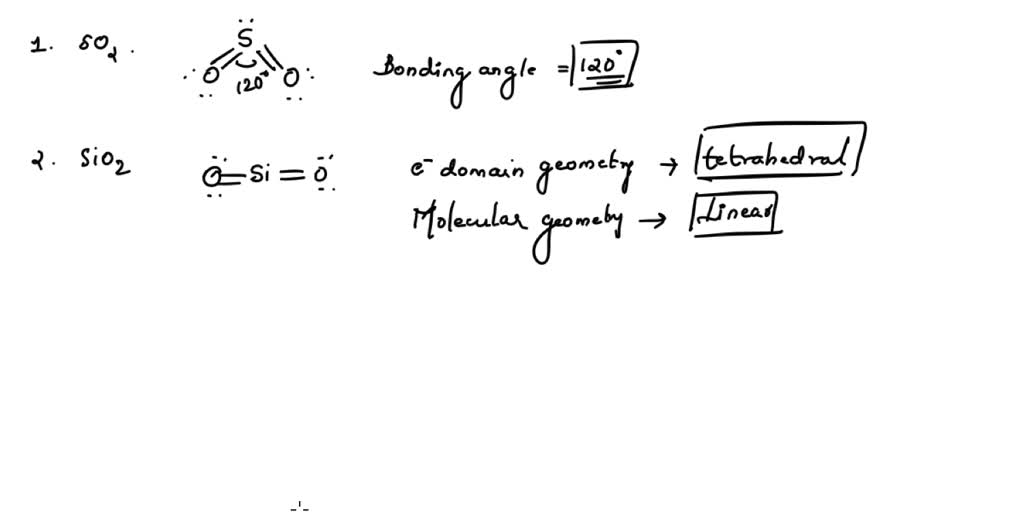 1. SO₂. S O O 120° Bonding angle = 120°
2. SiO₂ O=Si=O e⁻ domain geometry → tetrahedral
Molecular geomeby → Linear